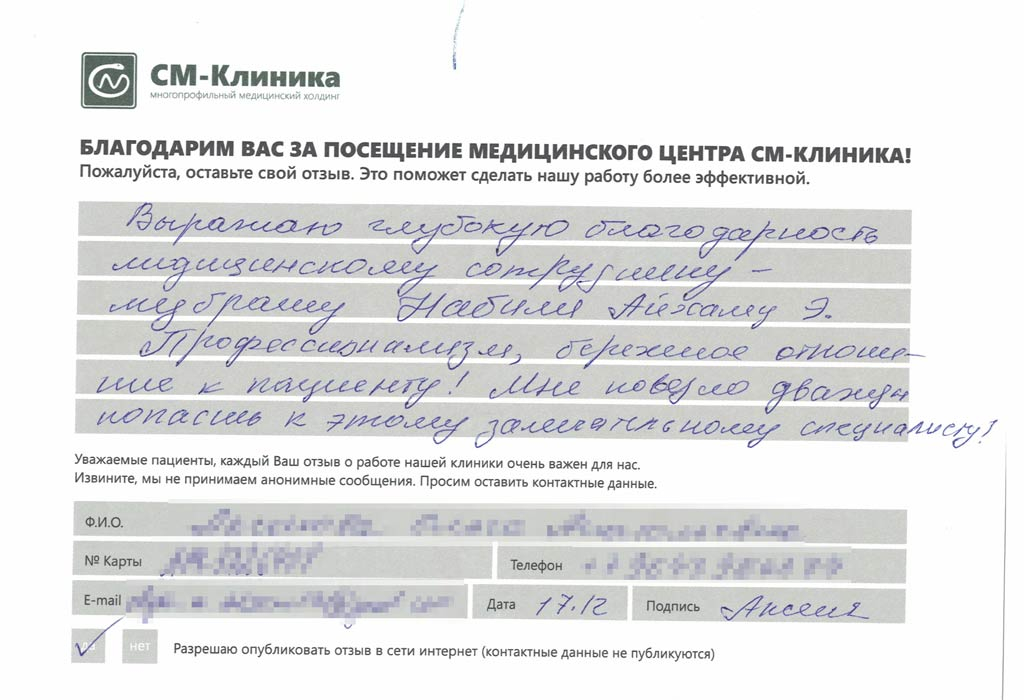 СМ-Клиника
многопрофильный медицинский холдинг
БЛАГОДАРИМ ВАС ЗА ПОСЕЩЕНИЕ МЕДИЦИНСКОГО ЦЕНТРА СМ-КЛИНИКА!
Пожалуйста, оставьте свой отзыв. Это поможет сделать нашу работу более эффективной.
Выражаю глубокую благодарность
мидицинскому сотруднику –
медбрату Набили Айхаму Э.
Профессионализм, бережное отноше-
ние к пациенту! Мне повезло дважды
попасть к этому замечательному специалисту!
Уважаемые пациенты, каждый Ваш отзыв о работе нашей клиники очень важен для нас.
Извините, мы не принимаем анонимные сообщения. Просим оставить контактные данные.
Ф.И.О.
№ Карты
Телефон
E-mail
Дата 17.12
Подпись
да нет Разрешаю опубликовать отзыв в сети интернет (контактные данные не публикуются)